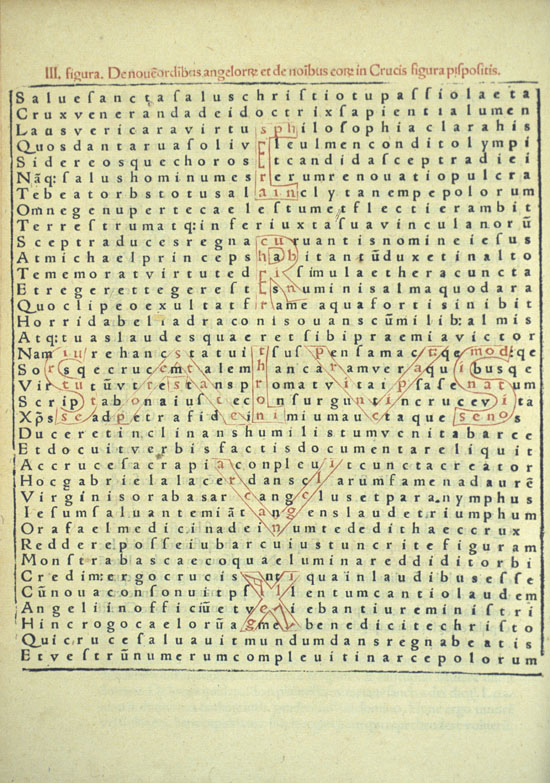 III. figura. De nouē ordībus angelorꝝ et de noībus eorꝝ in Crucis figura pīspositis.
Salueſanctaſaluschriſtiotupaſſiolaeta
Cruxvenerandadeidoctrixſapientialumen
Lausvericaravirtusphiloſophiaclarahis
Quosdantaruaſoliveleulmenconditolympi
Sidereosquechorosetcandidaſceptradiei
Nāq:ſalushominumesrerumrenouatiopulcra
Tebeatorbstotusalainelytanempepolorum
Omnegenupertecaeleſtumetflectierambit
Terreſtrumatq:inferiuxtaſuavinculanorū
Sceptraducesregnacuruantisnomineieſus
Atmichaelprincepshabitansūduxetinalto
Tememoratvirtutedeiſimulaetheracuncta
Etregerettegereſtesnuminisalmaquodara
Quoclipeoexultatframeaquafortisinibit
Horridabeliadraconisouanscūmilib:almis
Atq:tuaslaudesquaeretſibipraemiavictor
Namiurehancstatuitſuſpenſamacūqemodūqe
Sorsqecrucemtalemhancaramveraquibusque
Virtutūvtrestanspromatvitaipsaſenatum
Scriptabonaiuſteconſurguntincrucevita
Xp̄sſeadpetrafideineximiumauetaqueseno
Duceretinclinanshumilistumvenitabarce
Etdocuitverbisfactisdocumentareliquit
Accruceſacrapiaconpleuitcunctacreator
Hocgabrielalacerdansclarumfamenadaurē
Virginisorabasarceangelusetparanymphus
Ieſumſaluantemiātangenslaudetriumphum
Orafaelmedicinadeinumtededithaeccrux
Reddereepoſſeiubarcuiustuncritefiguram
Monſtrabascaecoquaeluminareddiditorbi
Credimergocrucisantiquainlaudibuseſſe
Cūnouaconſonuitpſallentumcantiolaudem
Angeliinofficiūetverebantiureminiſtri
Hincrogocaelorūagmenbenedicitechriſto
Quicruceſaluauitmundumdansregnabeatis
Etveſtrūnumerumcompleuitinarcepolorum